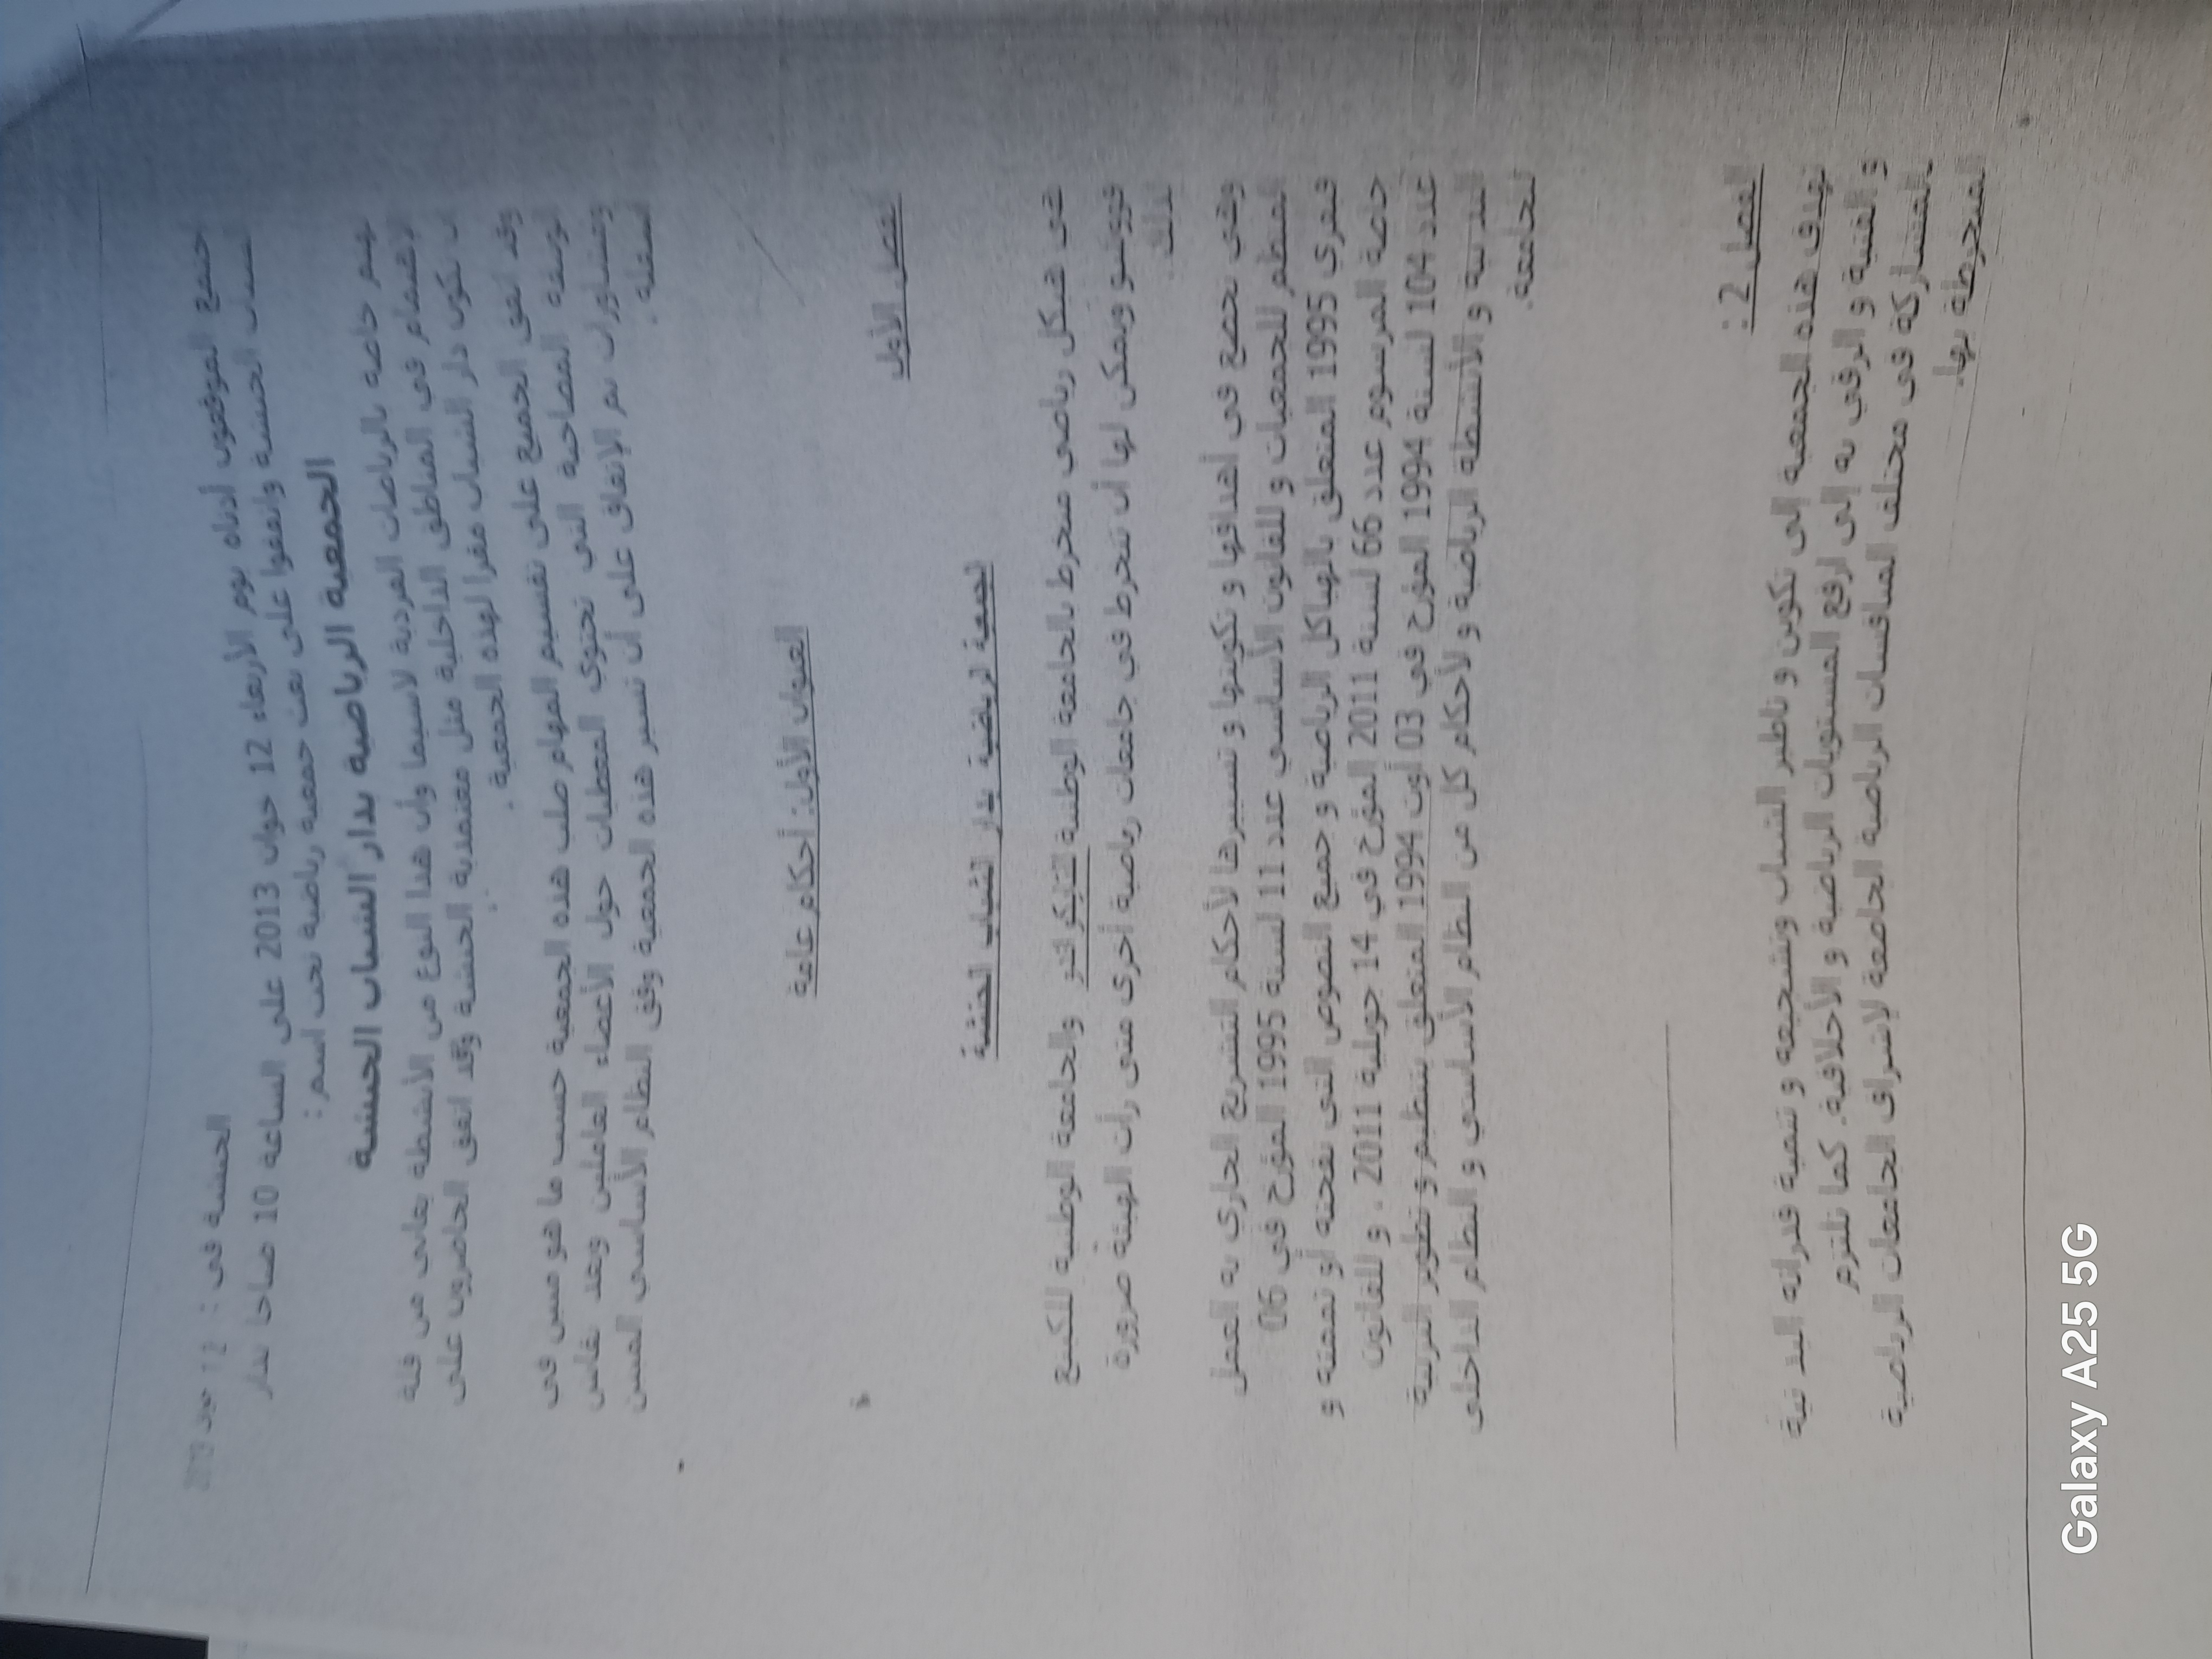 الحنشة في : 12 جوان 2013
اجتمع الموقعون أدناه يوم الأربعاء 12 جوان 2013 على الساعة 10 صباحا بدار
الشباب الحنشة واتفقوا على بعث جمعية رياضية تحت اسم :
الجمعية الرياضية بدار الشباب الحنشة
تهتم خاصة بالرياضات الفردية لاسيما وأن هذا النوع من الأنشطة يعاني من قلة
الاهتمام في المناطق الداخلية مثل معتمدية الحنشة وقد اتفق الحاضرون على
أن تكون دار الشباب مقرا لهذه الجمعية .
وقد اتفق الجميع على تقسيم المهام صلب هذه الجمعية حسب ما هو مبين في
الوثيقة المصاحبة التي تحتوي المعطيات حول الأعضاء العاملين وبعد نقاش
وتشاورات تم الاتفاق على أن تسير هذه الجمعية وفق النظام الأساسي المبين
أسفله .
العنوان الأول: أحكام عامة
الفصل الأول
الجمعية الرياضية بدار الشباب الحنشة
هي هيكل رياضي منخرط بالجامعة الوطنية للتايكواندو والجامعة الوطنية للكيك
فووتنبو ويمكن لها أن تنخرط في جامعات رياضية أخرى متى رأت الهيئة ضرورة
لذلك.
وهي تخضع في أهدافها و تكوينها و تسييرها لأحكام التشريع الجاري به العمل
المنظم للجمعيات و للقانون الأساسي عدد 11 لسنة 1995 المؤرخ في 06
فيفري 1995 المتعلق بالهياكل الرياضية و جميع النصوص التي نقحته أو تممته و
خاصة المرسوم عدد 66 لسنة 2011 المؤرخ في 14 جويلية 2011 ، و للقانون
عدد 104 لسنة 1994 المؤرخ في 03 أوت 1994 المتعلق بتنظيم و تطوير التربية
البدنية و الأنشطة الرياضية و لأحكام كل من النظام الأساسي و النظام الداخلي
للجامعة.
الفصل 2 :
تهدف هذه الجمعية إلى تكوين و تأطير الشباب وتشجيعه و تنمية قدراته البدنية
و الفنية و الرقي به إلى أرفع المستويات الرياضية و الأخلاقية. كما تلتزم
بالمشاركة في مختلف المنافسات الرياضية الخاضعة لإشراف الجامعات الرياضية
المنخرطة بها.
Galaxy A25 5G